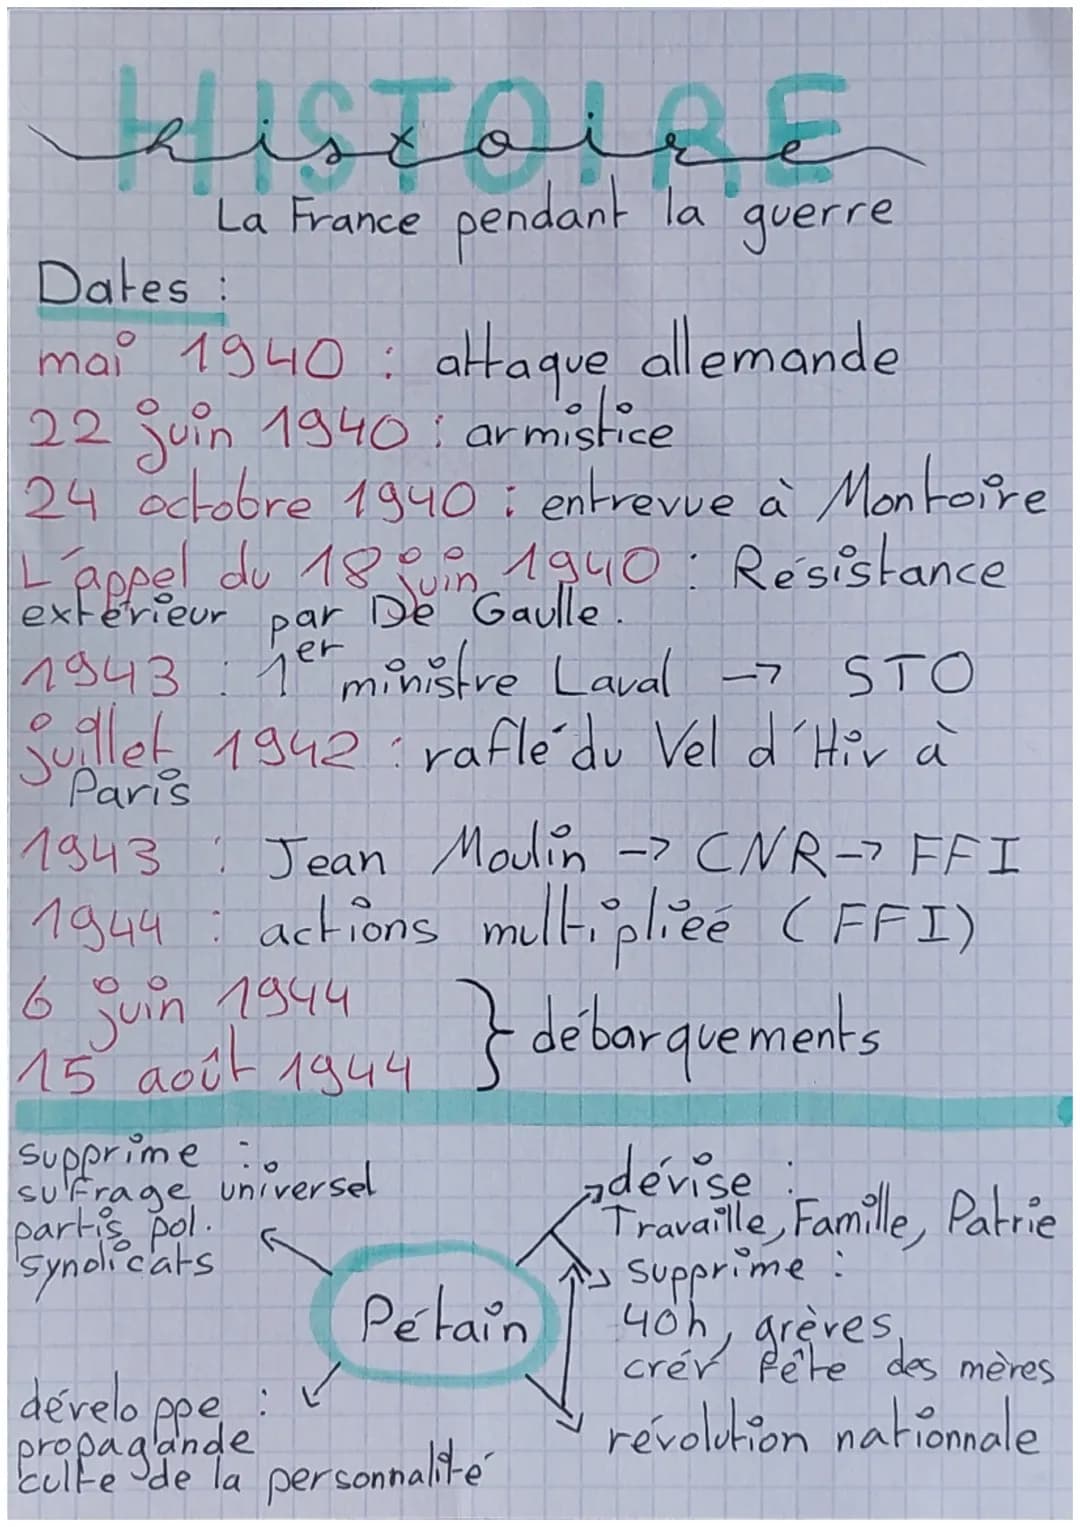 HISTOIRE
histoire
La France pendant la guerre
Dates :
mai 1940 : attaque allemande
22 juin 1940 : armistice
24 octobre 1940 : entrevue à Montoire
L'appel du 18 juin 1940 : Résistance
extérieur par De Gaulle.
1943 : 1er ministre Laval -> STO
juillet 1942 : raflé du Vel d'Hiv à
Paris
1943 : Jean Moulin -> CNR -> FFI
1944 : actions multipliéé (FFI)
6 juin 1944
15 août 1944
} débarquements
supprime :
sufrage universel
partis pol.
syndicats
dévise :
Travaille, Famille, Patrie
supprime :
40h, grèves,
crér fête des mères
Pétain
développe :
propagande
culte de la personnalité
révolution nationnale